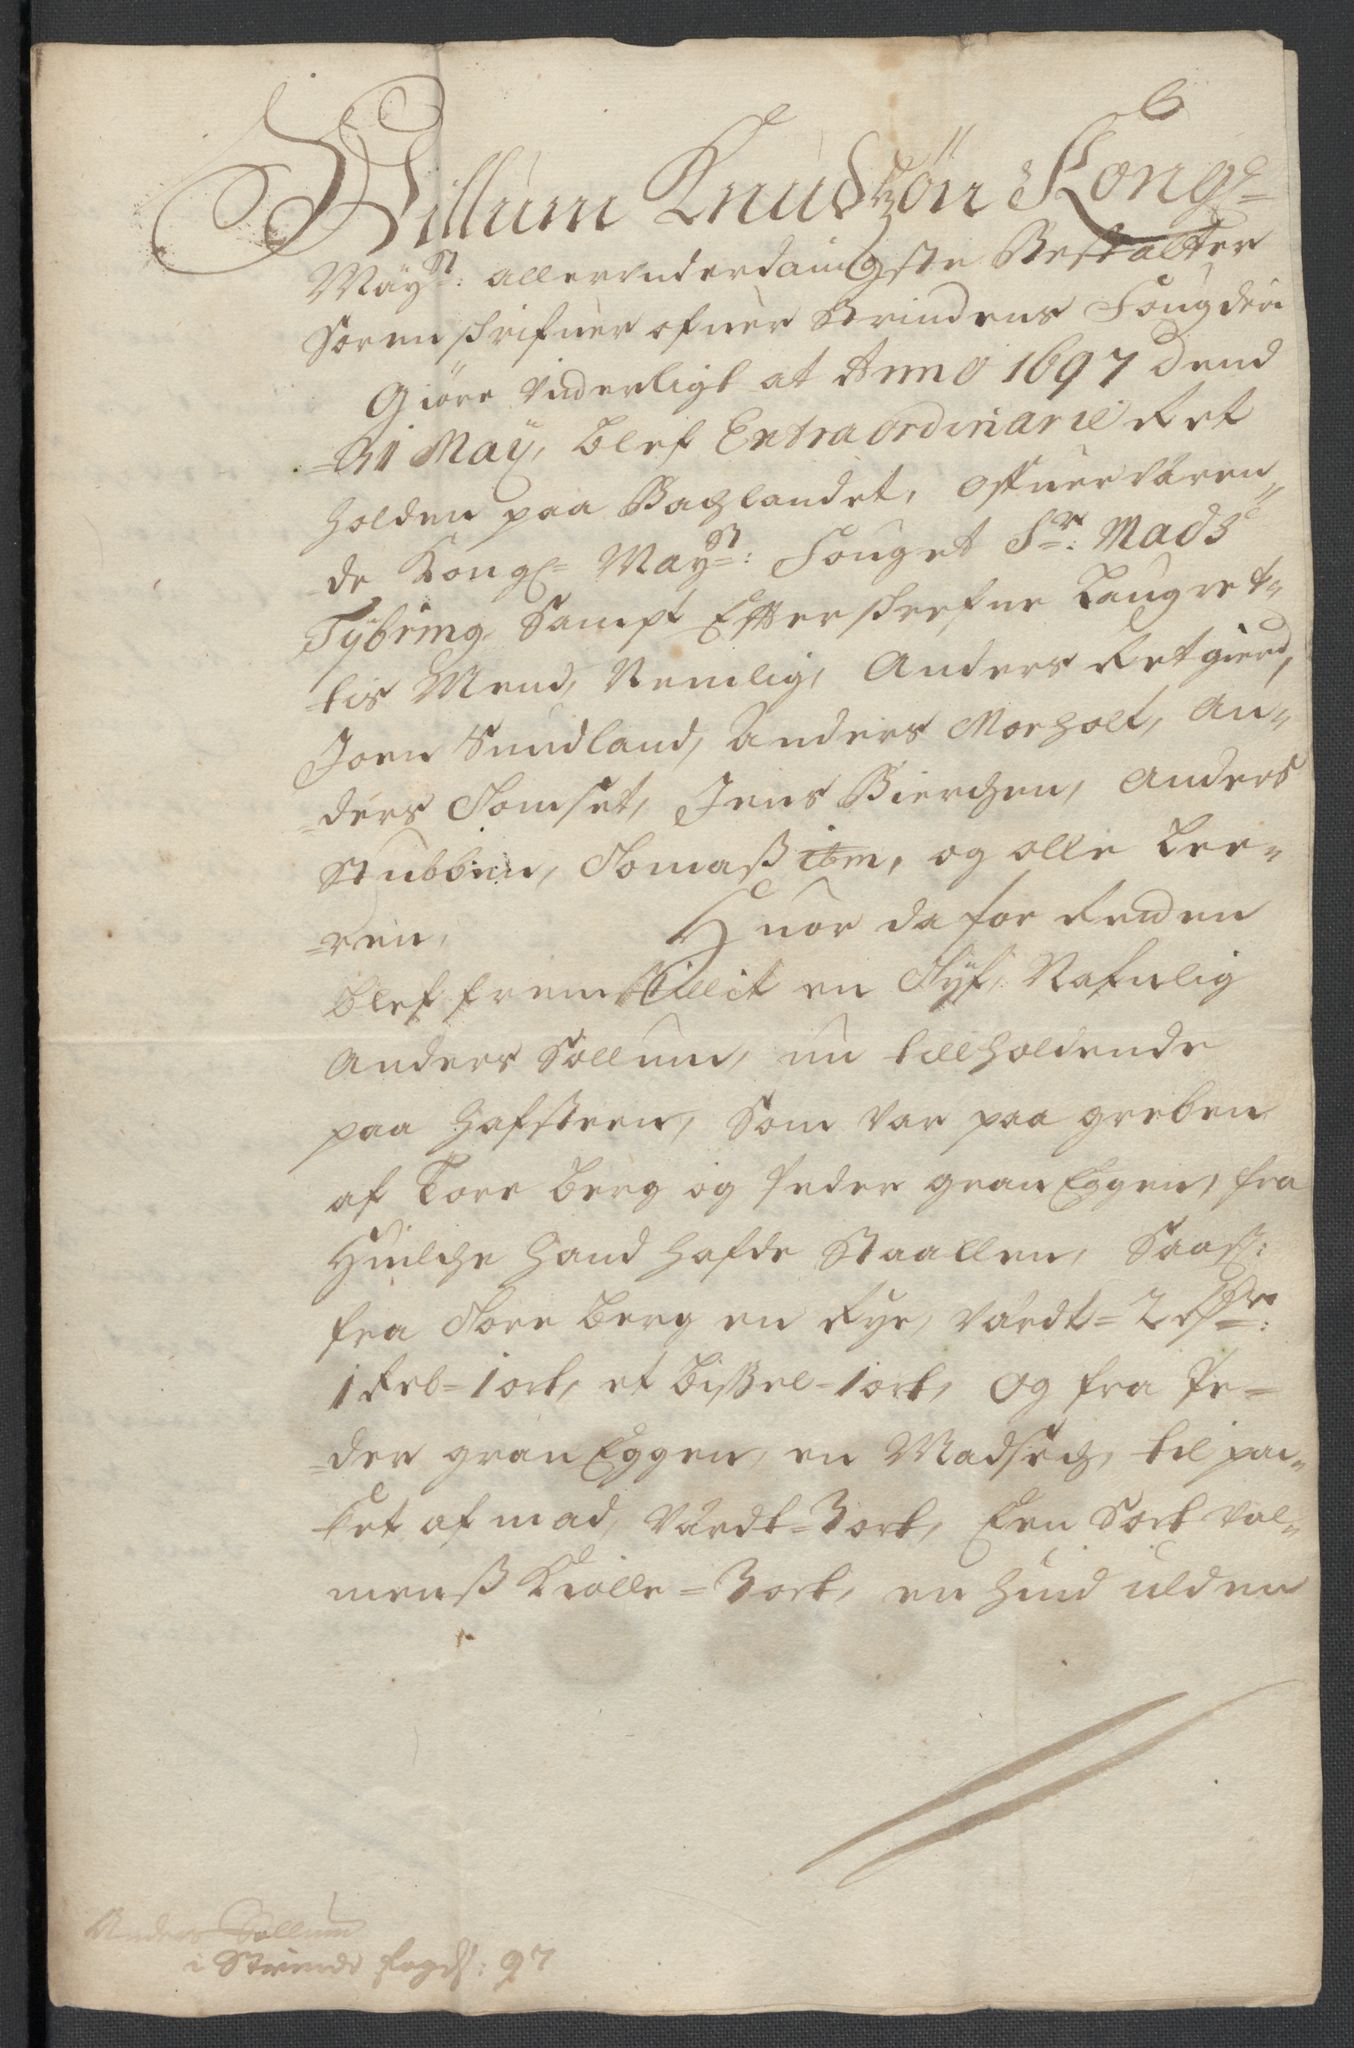 Willum Knudzön Kongl=
Mayst: allerunderdanigste Bestalter
Sorenschrifuer ofuer Strindens Fougderi
Giöre Vinderligt at Anno 1697 dend
31 May, blef Extraordinarie Ret
holden paa Bachlandet, offueruæren¬
de Kongl= Mayst: Fouget Sr: Mads
Tybring, Sampt Efterschrefne Laugret¬
tis Mend, Nemlig, Anders Retgierd,
Joen Sundland, Anders Moeholt, An¬
ders Tomset, Jens Bierchen, Anders
Stubban, Tomas ibm, og olle Lee¬
ren, Huor da for Retten
blef fremstillit en Tyf, Nafnlig
Anders Sollum, nu tillholdende
paa Hafsteen, Som var paa greben
af Tore Berg og Peder gran Eggen, fra
Huilche hand hafde Staallen, Saasz:
fra Tore Berg en Rye, værdt= 2 Rdr:
1 Reb= 1 ort, et Bissel= 1 ort, og fra Pe¬
der gran Eggen, en Madsech, til paa¬
ket af mad, værdt= 3 ort, Een Sort val¬
mensß Kiolle= 3 ort, en huid ulden
Anders Sollum
i Strinds fogd: 97